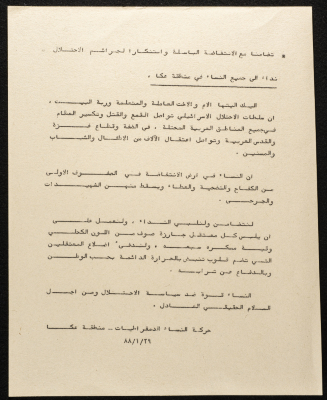 * تضامنا مع الانتفاضة الباسلة واستنكارا لجرائم الاحتلال
نداء الى جميع النساء في منطقة عكا .
اليك ايتها الام والاخت العاملة والمتعلمة وربة البيت .
ان سلطات الاحتلال الاسرائيلي تواصل القمع والقتل وتكسير العظام
في جميع المناطق العربية المحتلة ، في الضفة وقطاع غزة
والقدس العربية وتواصل اعتقال الآلاف من الاطفال والشباب
والمسنين .
ان النساء في ارض الانتفاضة في الصفوف الاولى
من الكفاح والتضحية والعطاء ويسقط منهن الشهيدات
والجرحى .
لنتضامن ولنلبي النداء . ولنعمل على
ان يلبس كل معتقل جارزة صوف من اللون الكحلي
وليفة سكرة سبعة ، ولندفئ اضلاع المعتقلين
التي تضم قلوب تنبض بالحرارة الدائمة بحب الوطن
وبالدفاع عن ترابه .
النساء قوة ضد سياسة الاحتلال ومن اجل
السلام الحقيقي العادل .
حركة النساء الديمقراطيات - منطقة عكا
٨٨/١/٢٩